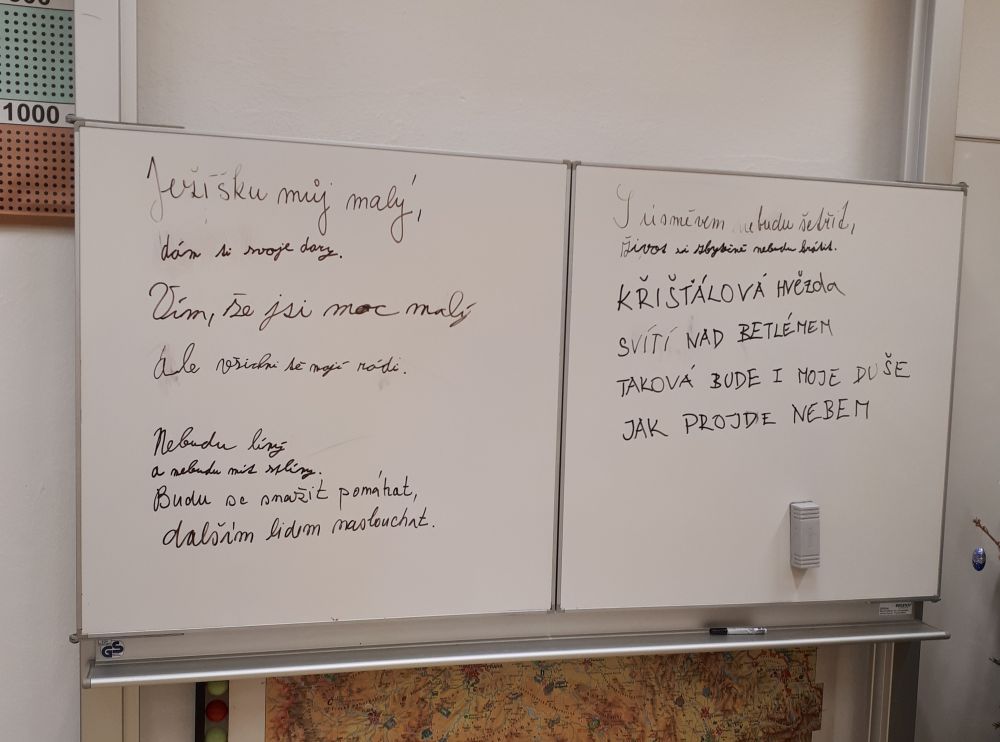 1000
Ježíšku můj malý,
dám ti svoje dary.
Vím, že jsi moc malý
ale všichni tě mají rádi.
Nebudu líný
a nebudu mít splíny.
Budu se snažit pomáhat,
dalším lidem naslouchat.
S úsměvem nebudu šetřit,
život si zbytečně nebudu krátit.
KŘIŠŤÁLOVÁ HVĚZDA
SVÍTÍ NAD BETLÉMEM
TAKOVÁ BUDE I MOJE DUŠE
JAK PROJDE NEBEM
GS